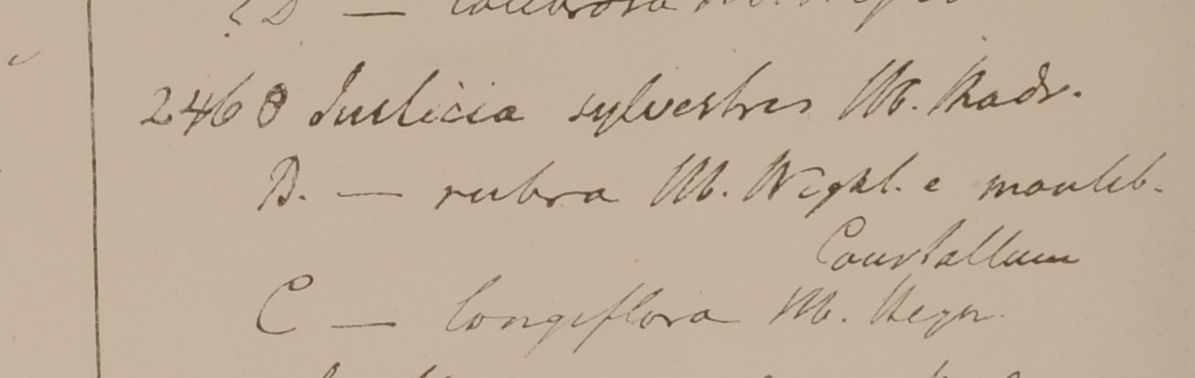 D —
2468 Justicia sylvestris M. Madr.
B. — rubra M. Wight. e montib.
Courtallum
C — longiflora M. Heyn.